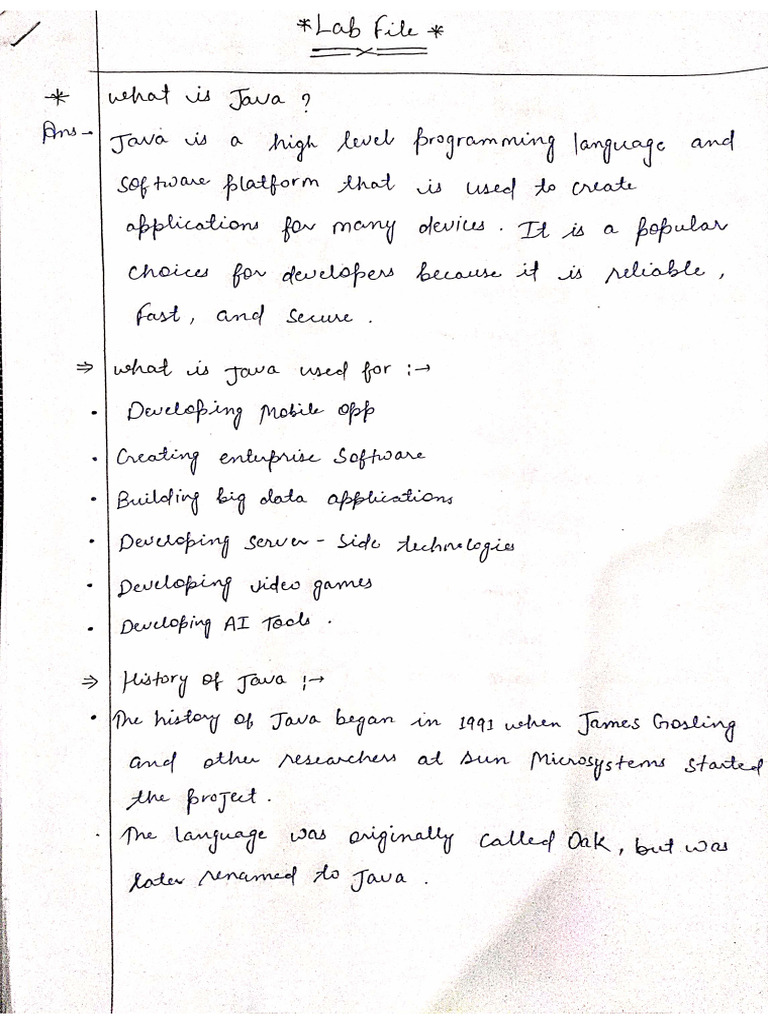 * Lab File *
* What is Java ?
Ans - Java is a high level programming language and
Software platform that is used to create
applications for many devices. It is a popular
choices for developers because it is reliable,
fast, and secure.
⇒ What is Java used for :→
• Developing Mobile app
• Creating enterprise Software
• Building big data applications
• Developing server - side technologies
• Developing video games
• Developing AI Tools .
⇒ History of Java :→
• The history of Java began in 1991 when James Gosling
and other researchers at Sun Microsystems started
the project.
• The language was originally called Oak, but was
later renamed to Java .